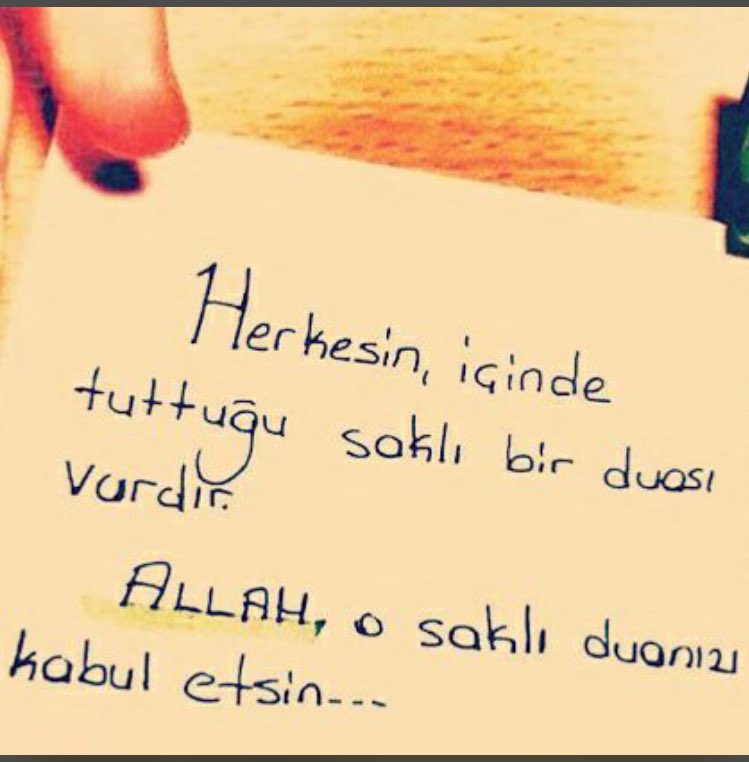 Herkesin, içinde
tuttuğu saklı bir duası
vardır.
ALLAH, o saklı duanızı
kabul etsin...